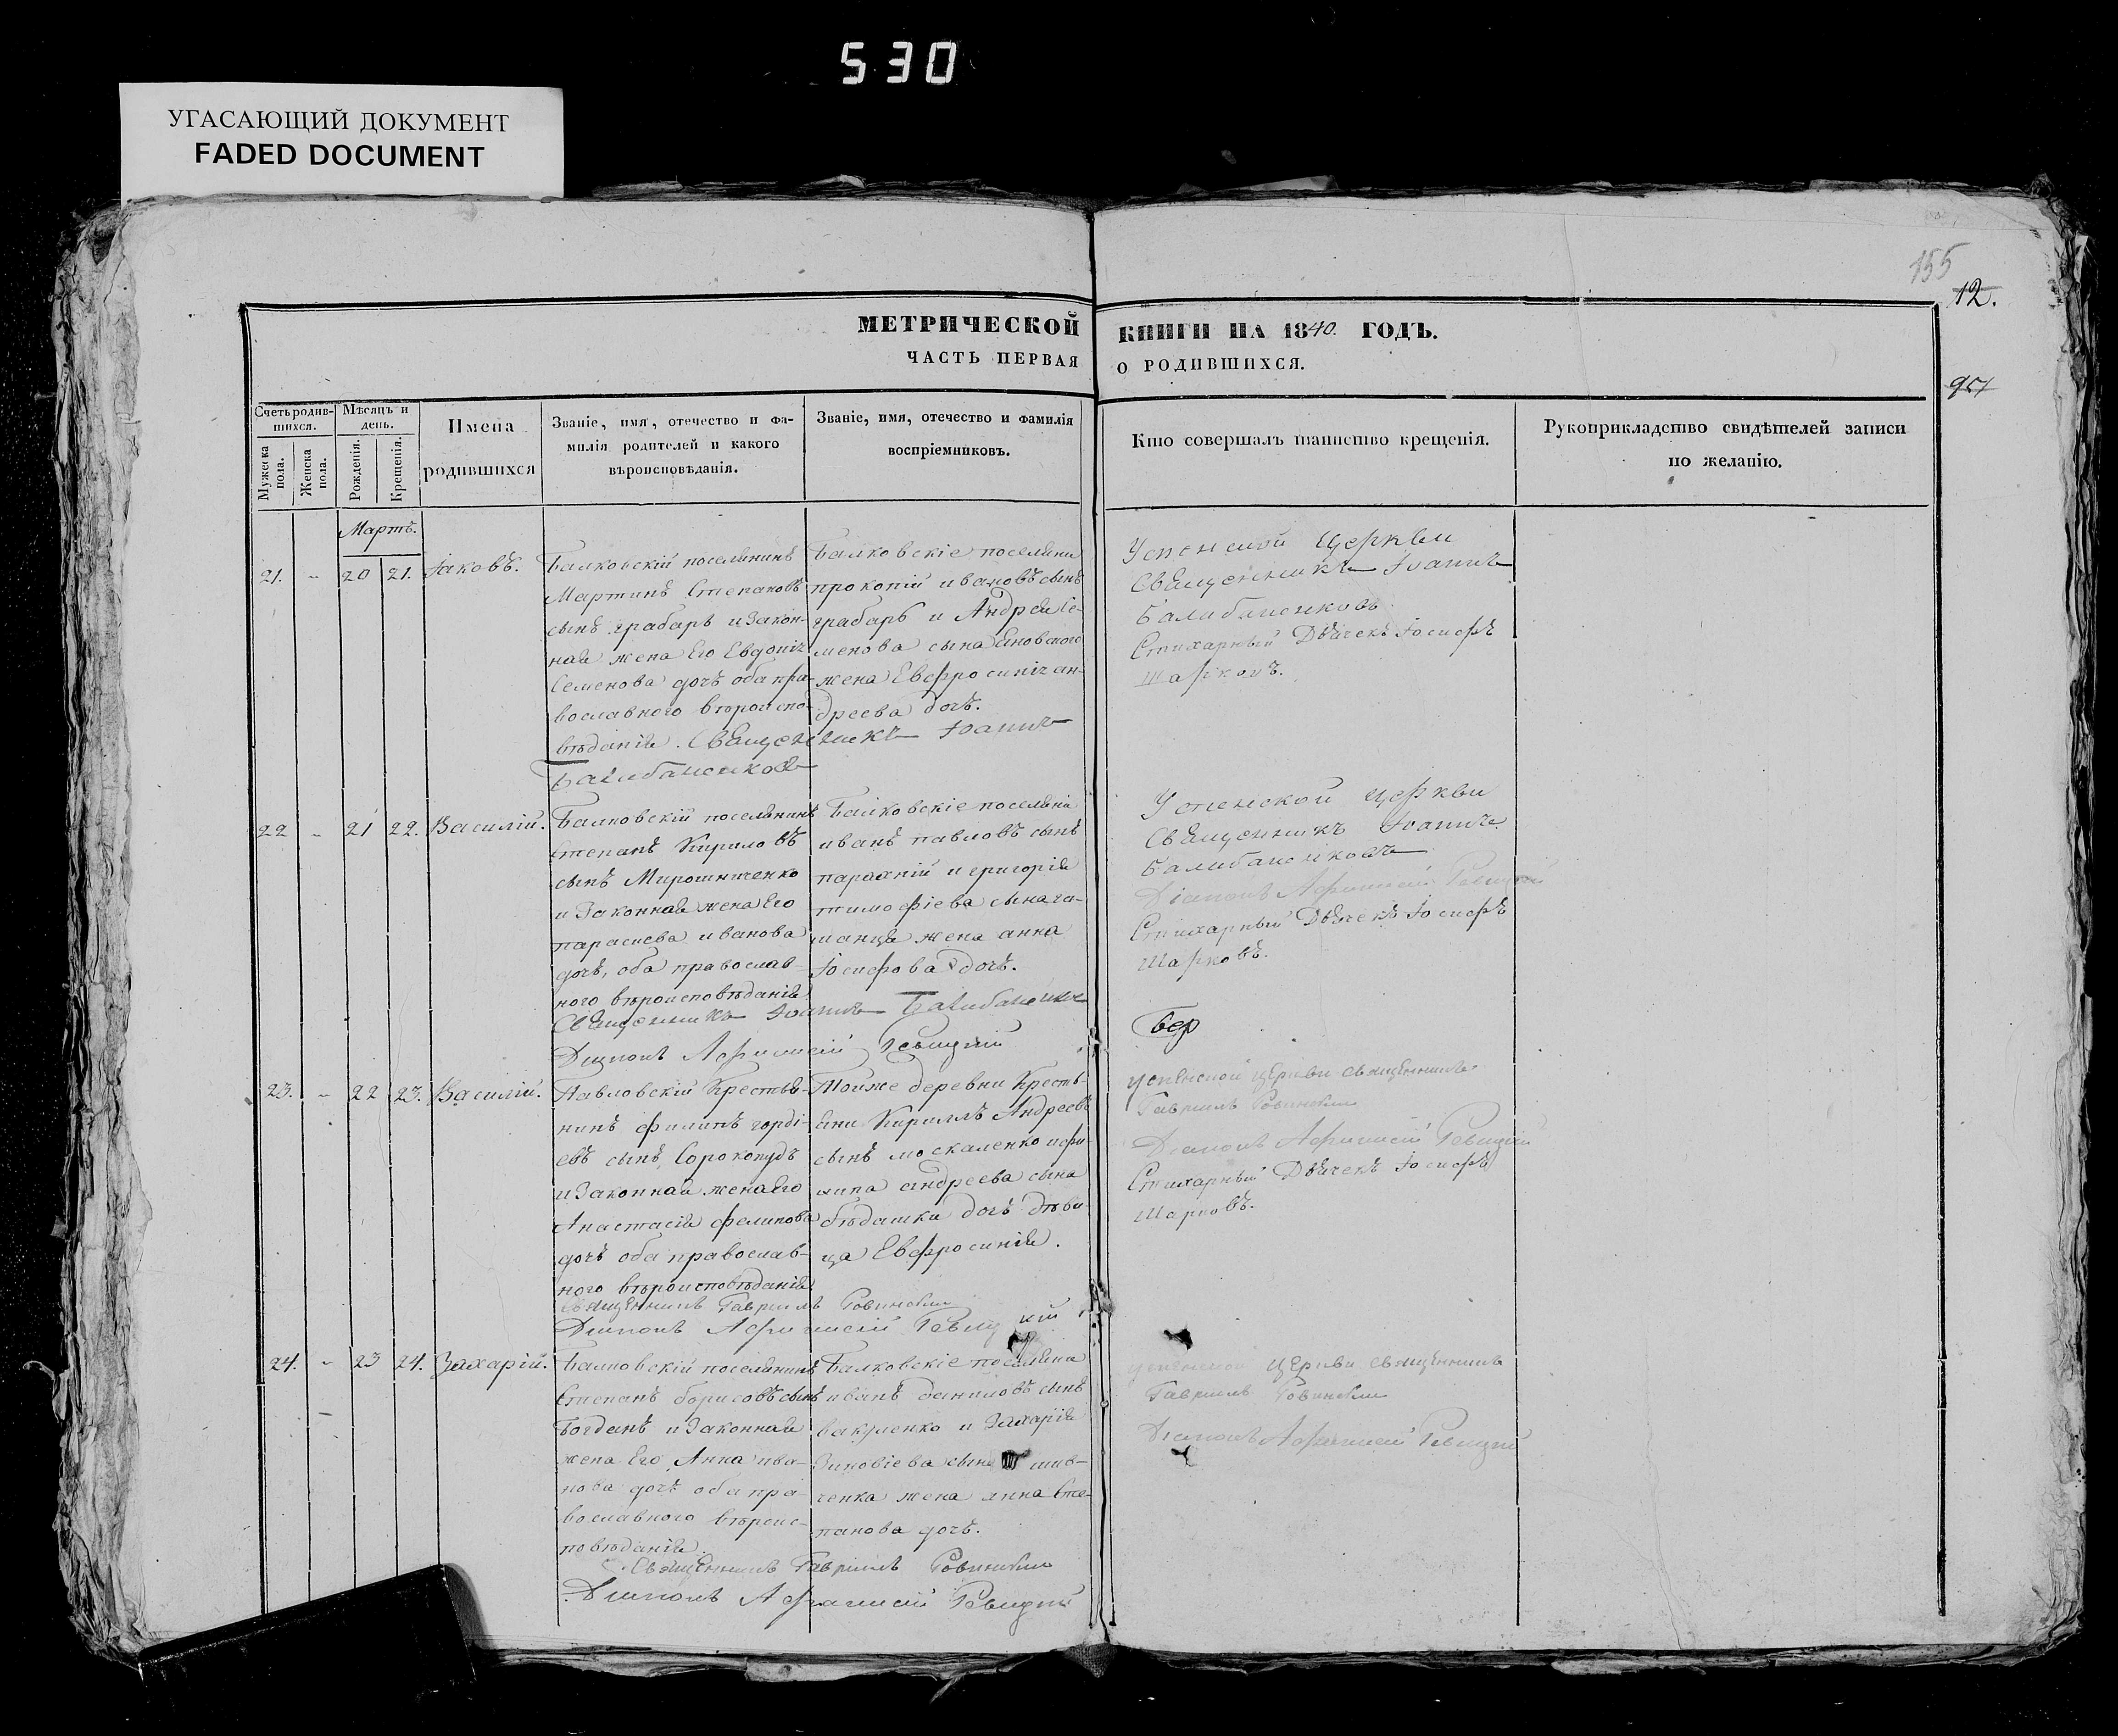 530
УГАСАЮЩИЙ ДОКУМЕНТ
FADED DOCUMENT
155
12.
МЕТРИЧЕСКОЙ КНИГИ НА 1840. ГОДЪ.
ЧАСТЬ ПЕРВАЯ О РОДИВШИХСЯ.
Счетъ родив-
шихся.
Мужеска
пола.
Женска
пола.
Мѣсяцъ и
день.
Рожденія.
Крещенія.
Имена
родившихся
Званіе, имя, отечество и фа-
милія родителей и какого
вѣроисповѣданія.
Званіе, имя, отечество и фамилія
воспріемниковъ.
Кто совершалъ таинство крещенія.
Рукоприкладство свидѣтелей записи
по желанію.
Мартъ.
21. - 20 21. Іаковъ.
Балковскій поселянинъ
Мартинъ Степановъ
сынъ грабарь и закон-
ная жена Его Евдокія
Семенова дочь оба пра-
вославного вѣроиспо-
вѣданія. Священникъ Іоаннъ
Балковскіе поселяни
прокопій ивановъ сынъ
грабарь и Андрея Се-
менова сына
жена Евфросинія ан-
дреева дочь.
Успенской Церкви
Священникъ Іоаннъ
Стихарный Дьячекъ Іосифъ
Шарковъ.
22 - 21 22. Василій.
Балковскій поселянинъ
Степанъ Кирило въ
сынъ Мирошниченко
и Законная жена Его
парасиева иванова
дочь, оба православ-
ного вѣроисповѣданія
Священникъ Іоаннъ
Діаконъ Афанасій Ревицкій
Балковскіе поселяни
иванъ павловъ сынъ
и григорія
тимофіева сына га-
манца жена анна
Іосифова дочь.
Успенской церкви
Священникъ Іоаннъ
Діаконъ Афанасій Ревицкій
Стихарный Дьячекъ Іосифъ
Шарковъ.
23. - 22 23. Василій.
Павловскій Крестья-
нинъ филипъ горді-
евъ сынъ Сорокопудъ
и Законная жена Его
Анастасія фелипова
дочь оба православ-
ного вѣроисповѣданія
Священникъ Гавриилъ
Діаконъ Афанасій Ревицкій
Тойже деревни Кресть-
яни Кириллъ Андреевъ
сынъ москаленко и фи-
липа андреева сына
дочь дѣви
ца Евфросинія.
успенской церкви священникъ
Гавриилъ
Діаконъ Афанасій Ревицкій
Стихарный Дьячекъ Іосифъ
Шарковъ.
24. - 23 24. Захарій.
Балковскій поселянинъ
Степанъ борисовъ сынъ
Богданъ и Законная
жена Его Анна ива-
нова дочь оба пра-
вославного вѣроис-
повѣданія.
Священникъ Гавриилъ
Діаконъ Афанасій Ревицкій
Балковскіе поселяни
иванъ даниловъ сынъ
вакуленко и Захарія
Зиновіева сына шив-
ченка жена анна Сте-
панова дочь.
успенской церкви священникъ
Гавриилъ
Діаконъ Афанасій Ревицкій